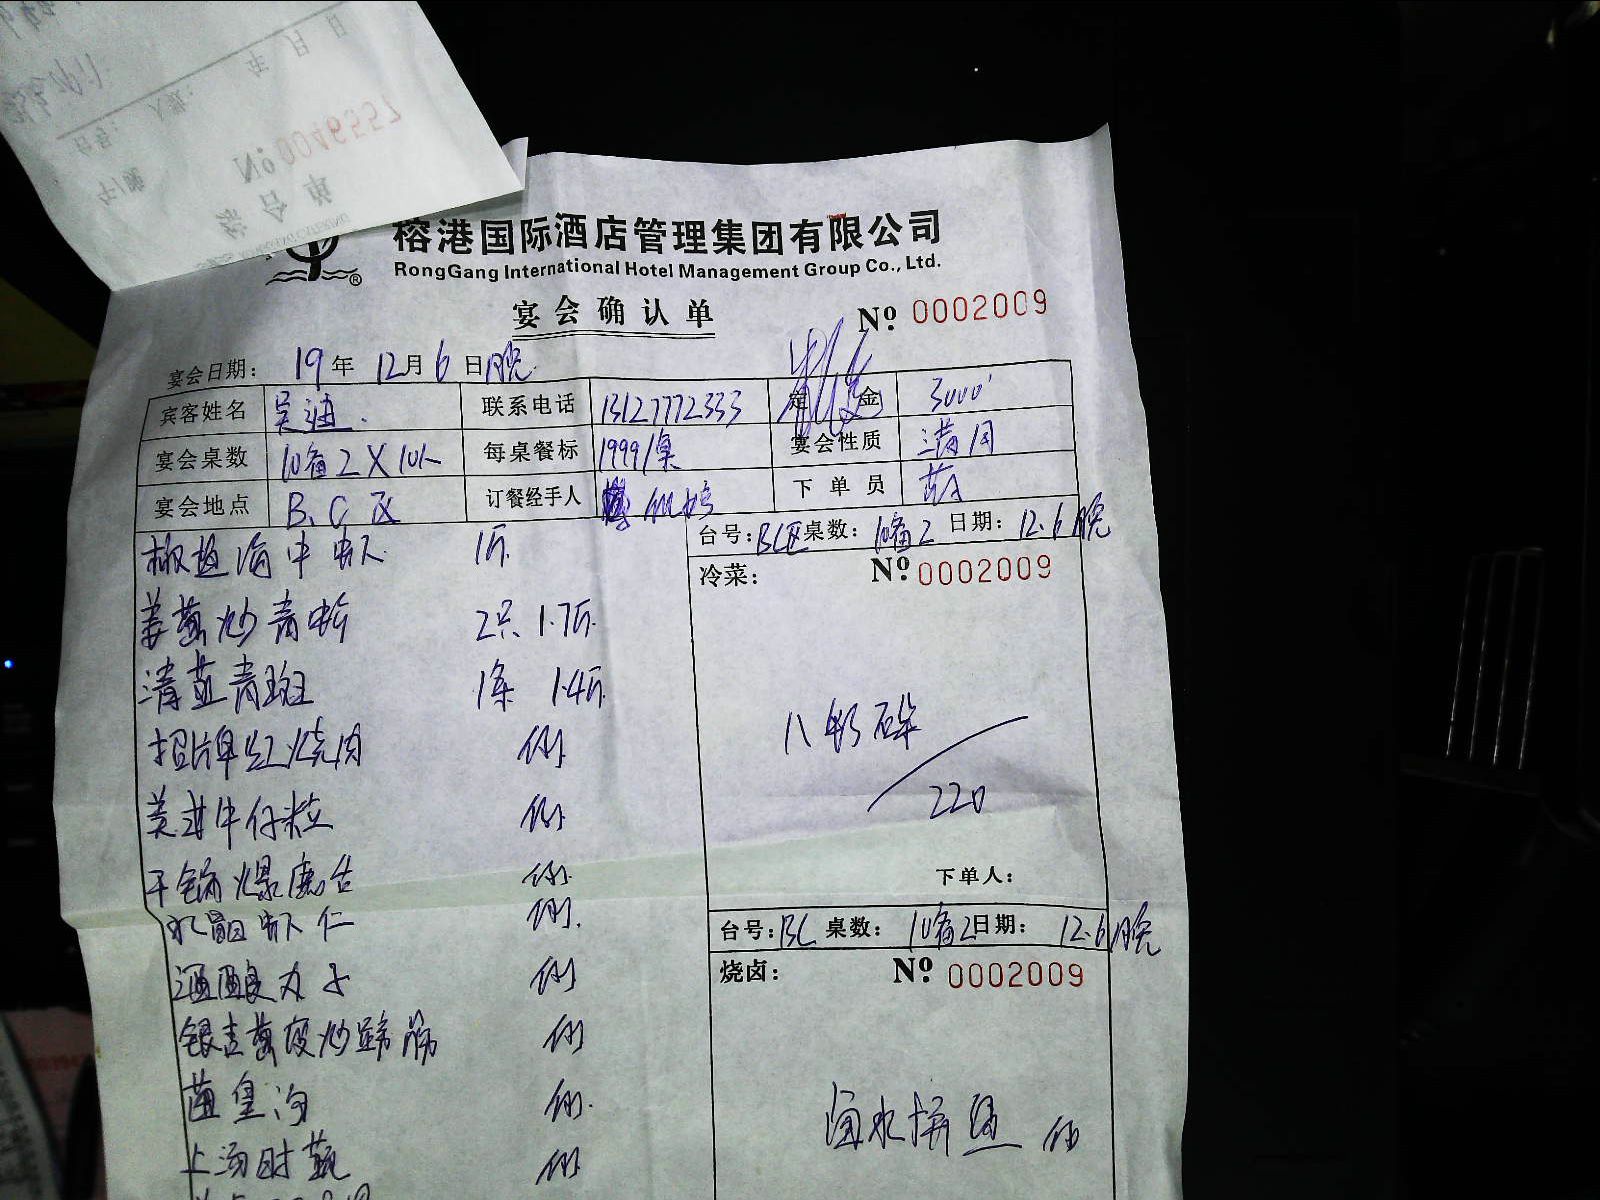 No 0046557
综合单
榕港国际酒店管理集团有限公司
RongGang International Hotel Management Group Co., Ltd.
®
宴会确认单
No 0002009
宴会日期: 19年 12月 6日晚
宾客姓名 吴迪 联系电话 13127772333 定金 3000
宴会桌数 10备2X10人 每桌餐标 1999/桌 宴会性质 满月
宴会地点 B、C区 订餐经手人 下单员
台号: BC区 桌数: 10备2 日期: 12.6晚
冷菜: No 0002009
椒盐海中虾 1斤
姜葱炒青蟹 2只 1.7斤
清蒸青斑 1条 1.4斤
招牌红烧肉 例
美式牛仔粒 例
干锅爆鹿舌 例
水晶虾仁 例
酒酿丸子 例
银杏葱段炒蹄筋 例
菌皇汤 例
上汤时蔬 例
八彩碟
220
下单人:
台号: BC 桌数: 10备2 日期: 12.6晚
烧卤: No 0002009
卤水拼盘 例